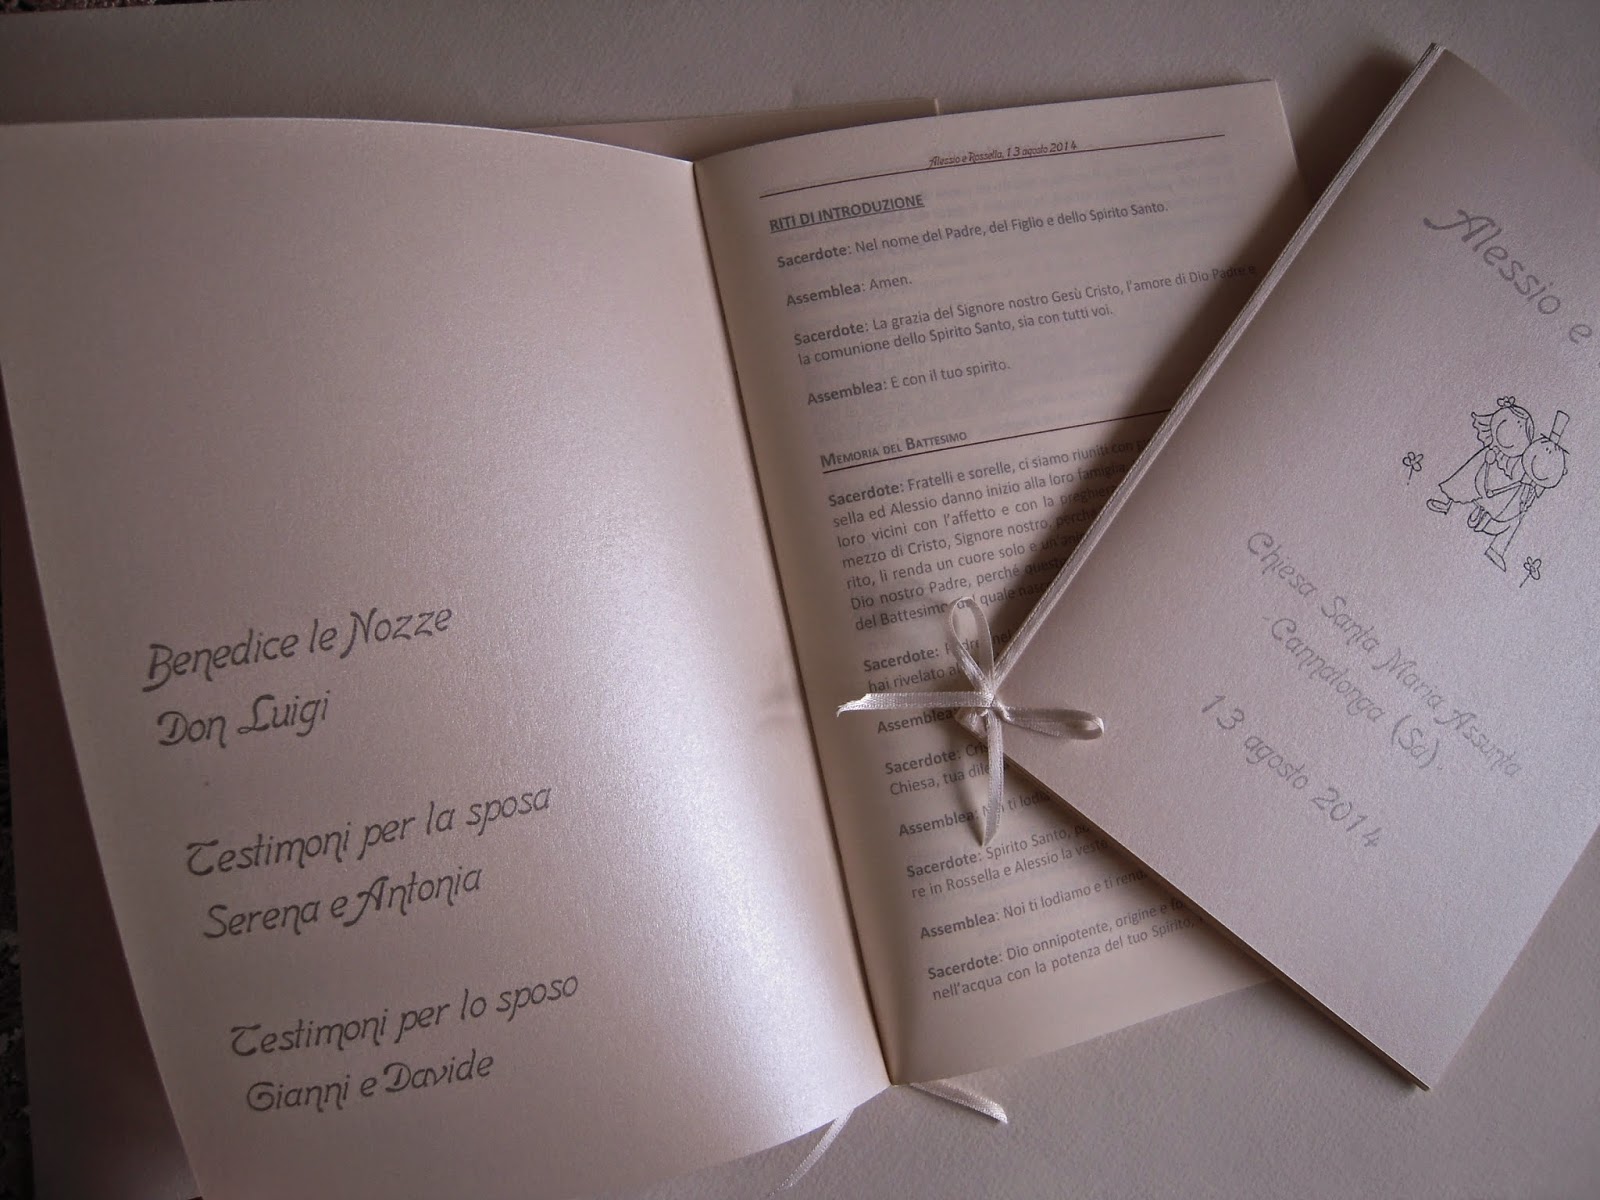 Benedice le Nozze
Don Luigi
Testimoni per la sposa
Serena e Antonia
Testimoni per lo sposo
Gianni e Davide
Alessio e Rossella, 13 agosto 2014
RITI DI INTRODUZIONE
Sacerdote: Nel nome del Padre, del Figlio e dello Spirito Santo.
Assemblea: Amen.
Sacerdote: La grazia del Signore nostro Gesù Cristo, l'amore di Dio Padre e
la comunione dello Spirito Santo, sia con tutti voi.
Assemblea: E con il tuo spirito.
MEMORIA DEL BATTESIMO
Sacerdote: Fratelli e sorelle, ci siamo riuniti con
sella ed Alessio danno inizio alla loro famiglia,
loro vicini con l'affetto e con la preghiera
mezzo di Cristo, Signore nostro, perché
rito, li renda un cuore solo e
Dio nostro Padre, perché
del Battesimo, quale
Sacerdote:
hai rivelato
Assemblea
Sacerdote:
Chiesa, tua
Assemblea: Noi ti
Sacerdote: Spirito Santo,
re in Rossella e Alessio la veste
Assemblea: Noi ti lodiamo e ti
Sacerdote: Dio onnipotente, origine e
nell'acqua con la potenza del tuo Spirito,
Alessio e
Chiesa Santa Maria Assunta
Cannalonga (Sa).
13 agosto 2014